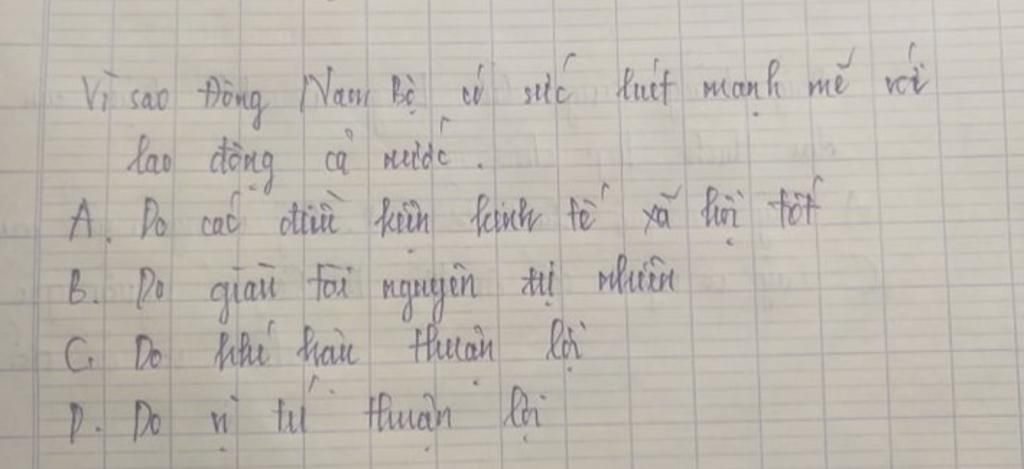 Vì sao Đông Nam Bộ có sức hút mạnh mẽ với
lao động cả nước.
A. Do các điều kiện kinh tế xã hội tốt
B. Do giàu tài nguyên tự nhiên
C. Do khí hậu thuận lợi
D. Do vị trí thuận lợi